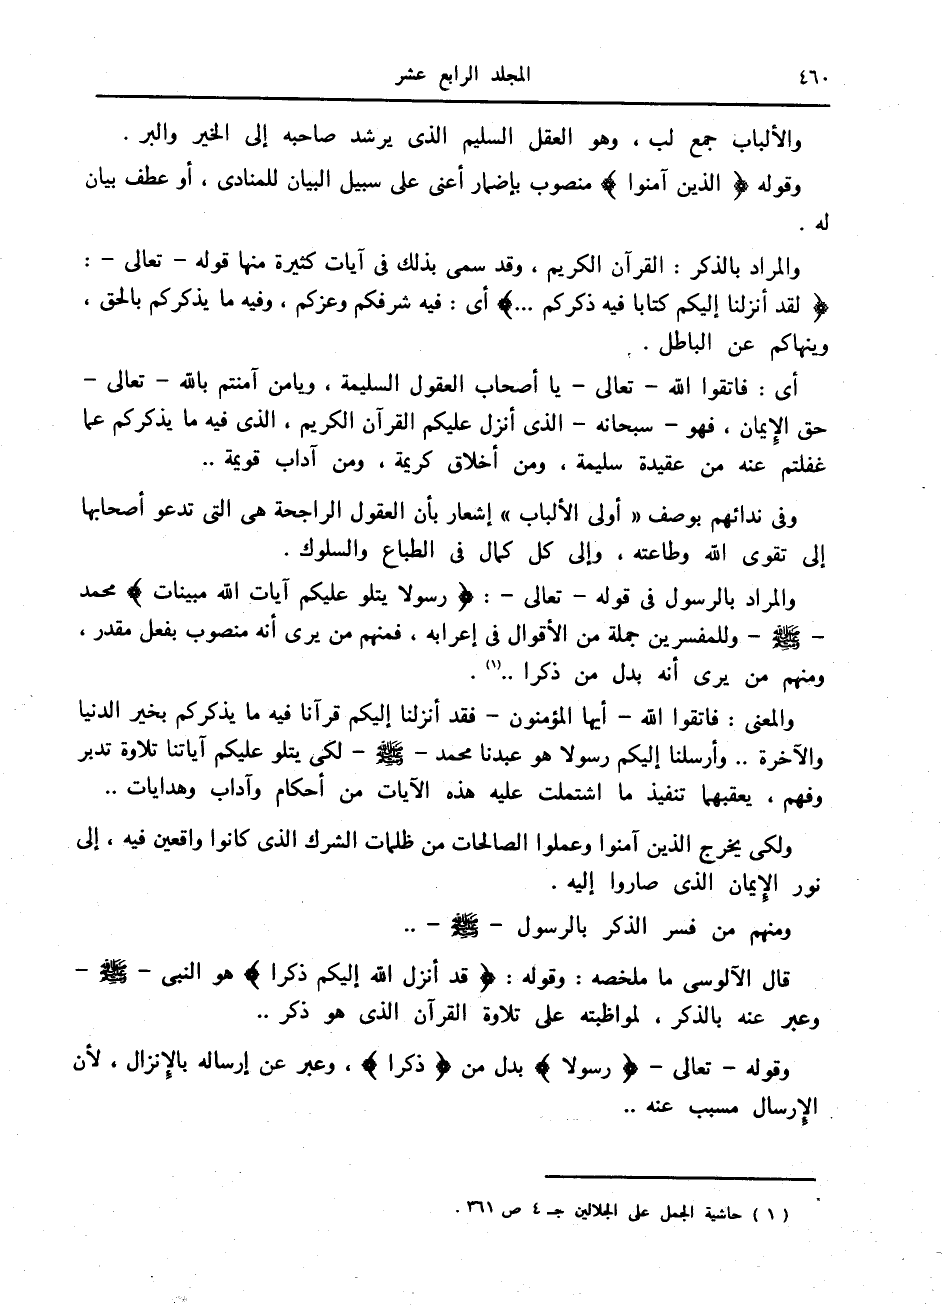 ٤٦٠
المجلد الرابع عشر
والألباب جمع لب ، وهو العقل السليم الذى يرشد صاحبه إلى الخير والبر .
وقوله ﴿ الذين آمنوا ﴾ منصوب بإضمار أعنى على سبيل البيان للمنادى ، أو عطف بيان
له .
والمراد بالذكر : القرآن الكريم ، وقد سمى بذلك فى آيات كثيرة منها قوله – تعالى – :
﴿ لقد أنزلنا إليكم كتابا فيه ذكركم ...﴾ أى : فيه شرفكم وعزكم ، وفيه ما يذكركم بالحق ،
وينهاكم عن الباطل .
أى : فاتقوا الله – تعالى – يا أصحاب العقول السليمة ، ويامن آمنتم بالله – تعالى –
حق الإيمان ، فهو – سبحانه – الذى أنزل عليكم القرآن الكريم ، الذى فيه ما يذكركم عما
غفلتم عنه من عقيدة سليمة ، ومن أخلاق كريمة ، ومن آداب قويمة ..
وفى ندائهم بوصف « أولى الألباب » إشعار بأن العقول الراجحة هى التى تدعو أصحابها
إلى تقوى الله وطاعته ، وإلى كل كمال فى الطباع والسلوك .
والمراد بالرسول فى قوله – تعالى – : ﴿ رسولا يتلو عليكم آيات الله مبينات ﴾ محمد
– ﷺ – وللمفسرين جملة من الأقوال فى إعرابه ، فمنهم من يرى أنه منصوب بفعل مقدر ،
ومنهم من يرى أنه بدل من ذكرا ..(١) .
والمعنى : فاتقوا الله – أيها المؤمنون – فقد أنزلنا إليكم قرآنا فيه ما يذكركم بخير الدنيا
والآخرة .. وأرسلنا إليكم رسولا هو عبدنا محمد – ﷺ – لكى يتلو عليكم آياتنا تلاوة تدبر
وفهم ، يعقبهما تنفيذ ما اشتملت عليه هذه الآيات من أحكام وآداب وهدايات ..
ولكى يخرج الذين آمنوا وعملوا الصالحات من ظلمات الشرك الذى كانوا واقعين فيه ، إلى
نور الإيمان الذى صاروا إليه .
ومنهم من فسر الذكر بالرسول – ﷺ – ..
قال الآلوسى ما ملخصه : وقوله : ﴿ قد أنزل الله إليكم ذكرا ﴾ هو النبى – ﷺ –
وعبر عنه بالذكر ، لمواظبته على تلاوة القرآن الذى هو ذكر ..
وقوله – تعالى – ﴿ رسولا ﴾ بدل من ﴿ ذكرا ﴾ ، وعبر عن إرساله بالإنزال ، لأن
الإرسال مسبب عنه ..
( ١ ) حاشية الجمل على الجلالين جـ ٤ ص ٣٦١ .